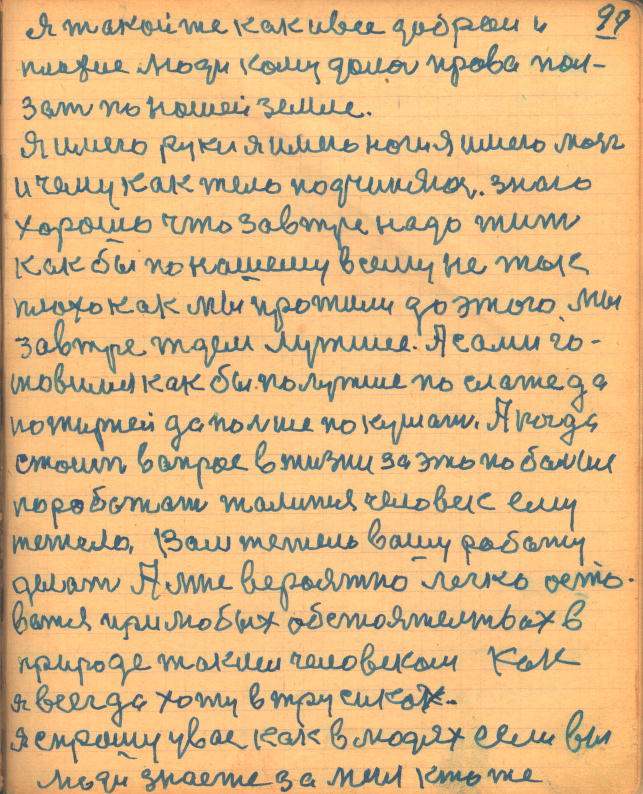 99
Я такой же как и все добрыи и
плохие люди кому дано права пол-
зат по нашей земле.
Я имею руки я имею ноги я имею мозг
и чему как тело подчиняюс. знаю
хорошо что завтре надо жит
как бы по нашему всему не так
плохо как мы прожили до этого. мы
завтре ждем лутшее. А сами го-
товимся как бы полутше по слаже да
пожирней да полше покушат. А когда
стоит вапрос в жизни за это побольше
поработат жалится человек ему
тежело. Вам тежело вашу работу
делат А мне вероятно легко оста-
ватся при любых обстоятелтвах в
природе таким человеком Как
я всегда хожу в трусиках.
я спрошу у вас как в людях если вы
люди знаете за меня кто же